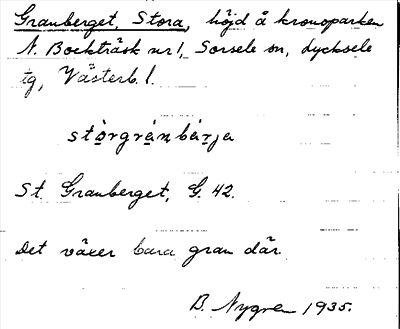 Granberget, Stora, höjd å kronoparken
N. Bockträsk nr 1, Sorsele sn, Lycksele
tg, Västerb. l.
stòrgránbàrja
St. Granberget, G. 42.
Det växer bara gran där.
B. Nygren 1935.